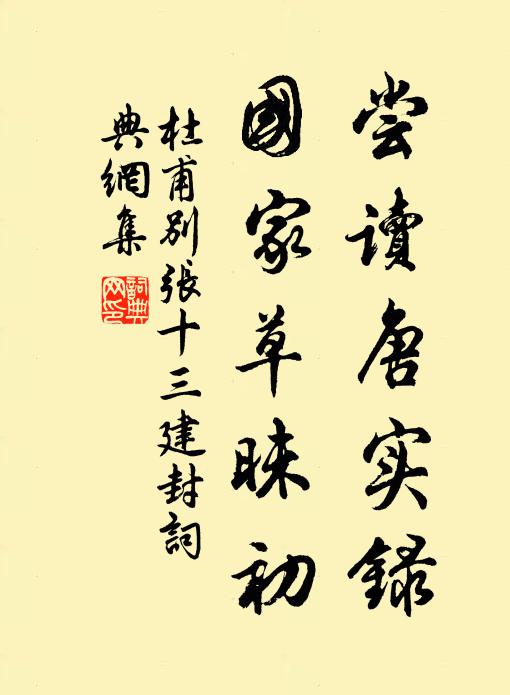 尝读唐实録
國家草昧初
杜甫別張十三建封詞
典網集
詞典網印